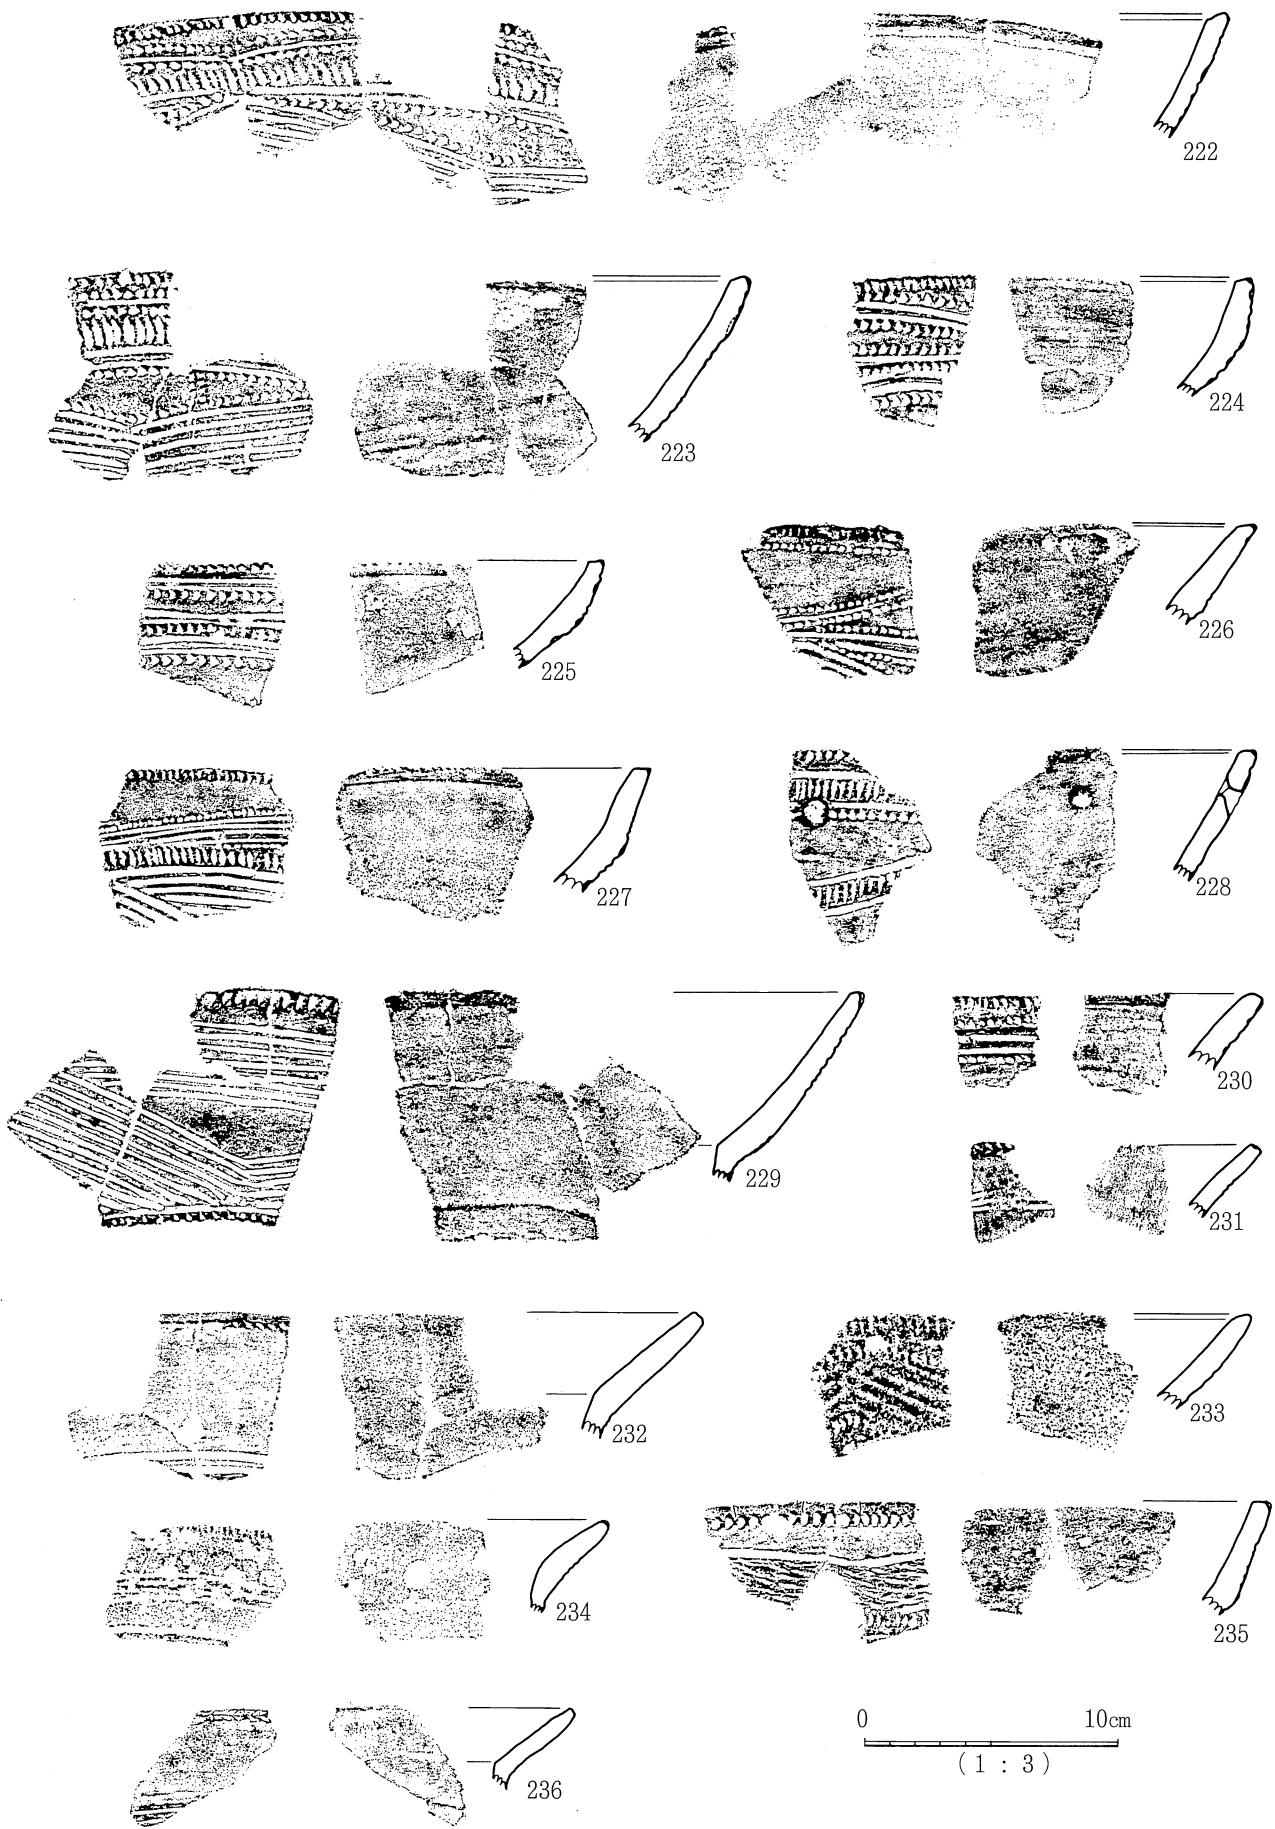 222
223
224
225
226
227
228
229
230
231
232
233
234
235
236
0 10cm
(1:3)